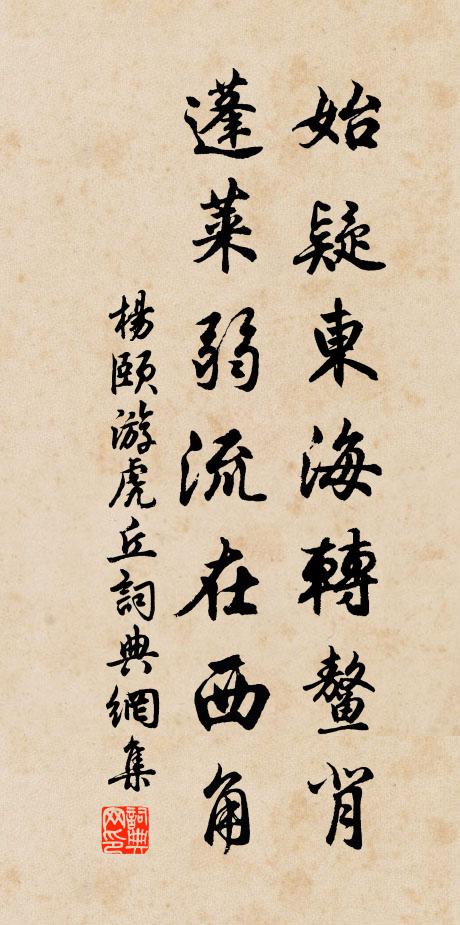 始疑東海轉鰲背
蓬萊弱流在西角
楊頤游虎丘詞典網集
詞典網印